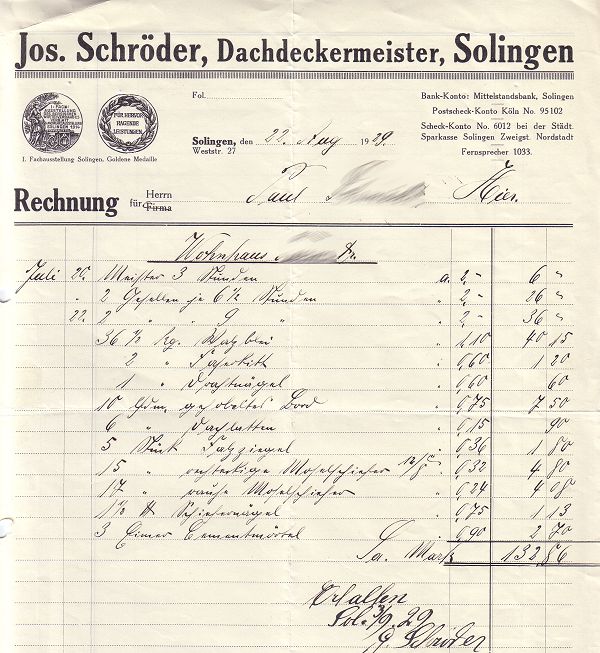 Jos. Schröder, Dachdeckermeister, Solingen
I. FACH-AUSSTELLUNG
FÜR HERVOR-
RAGENDE
LEISTUNGEN.
I. Fachausstellung Solingen, Goldene Medaille
Fol.
Solingen, den 22. Aug 1929.
Weststr. 27
Bank-Konto: Mittelstandsbank, Solingen
Postscheck-Konto Köln No. 95102
Scheck-Konto No. 6012 bei der Städt.
Sparkasse Solingen Zweigst. Nordstadt
Fernsprecher 1033.
Rechnung für Herrn Firma Paul Hier.
Wohnhaus
Juli 20. Meister 3 Stunden a. 2,- 6 "
" 2 Gesellen je 6 1/2 Stunden " 2,- 26 "
22. 2 " " 9 " " 2,- 36 "
36 1/2 kg. Walzblei " 1,10 40 15
2 " Faserkitt " 0,60 1 20
1 " Drahtnägel " 0,60 60
10 gehobeltes Bord " 0,75 7 50
6 " Dachlatten " 0,15 90
5 Stück Falzziegel " 0,36 1 80
15 " rechteckige Moselschiefer " 0,32 4 80
17 " rauhe Moselschiefer " 0,24 4 08
1 1/2 ℔ Schiefernägel " 0,75 1 13
3 Eimer Cementmörtel 0,90 2 70
Sa. Mark 132,86
Erhalten
Sol. 3/9. 29
J. Schröder